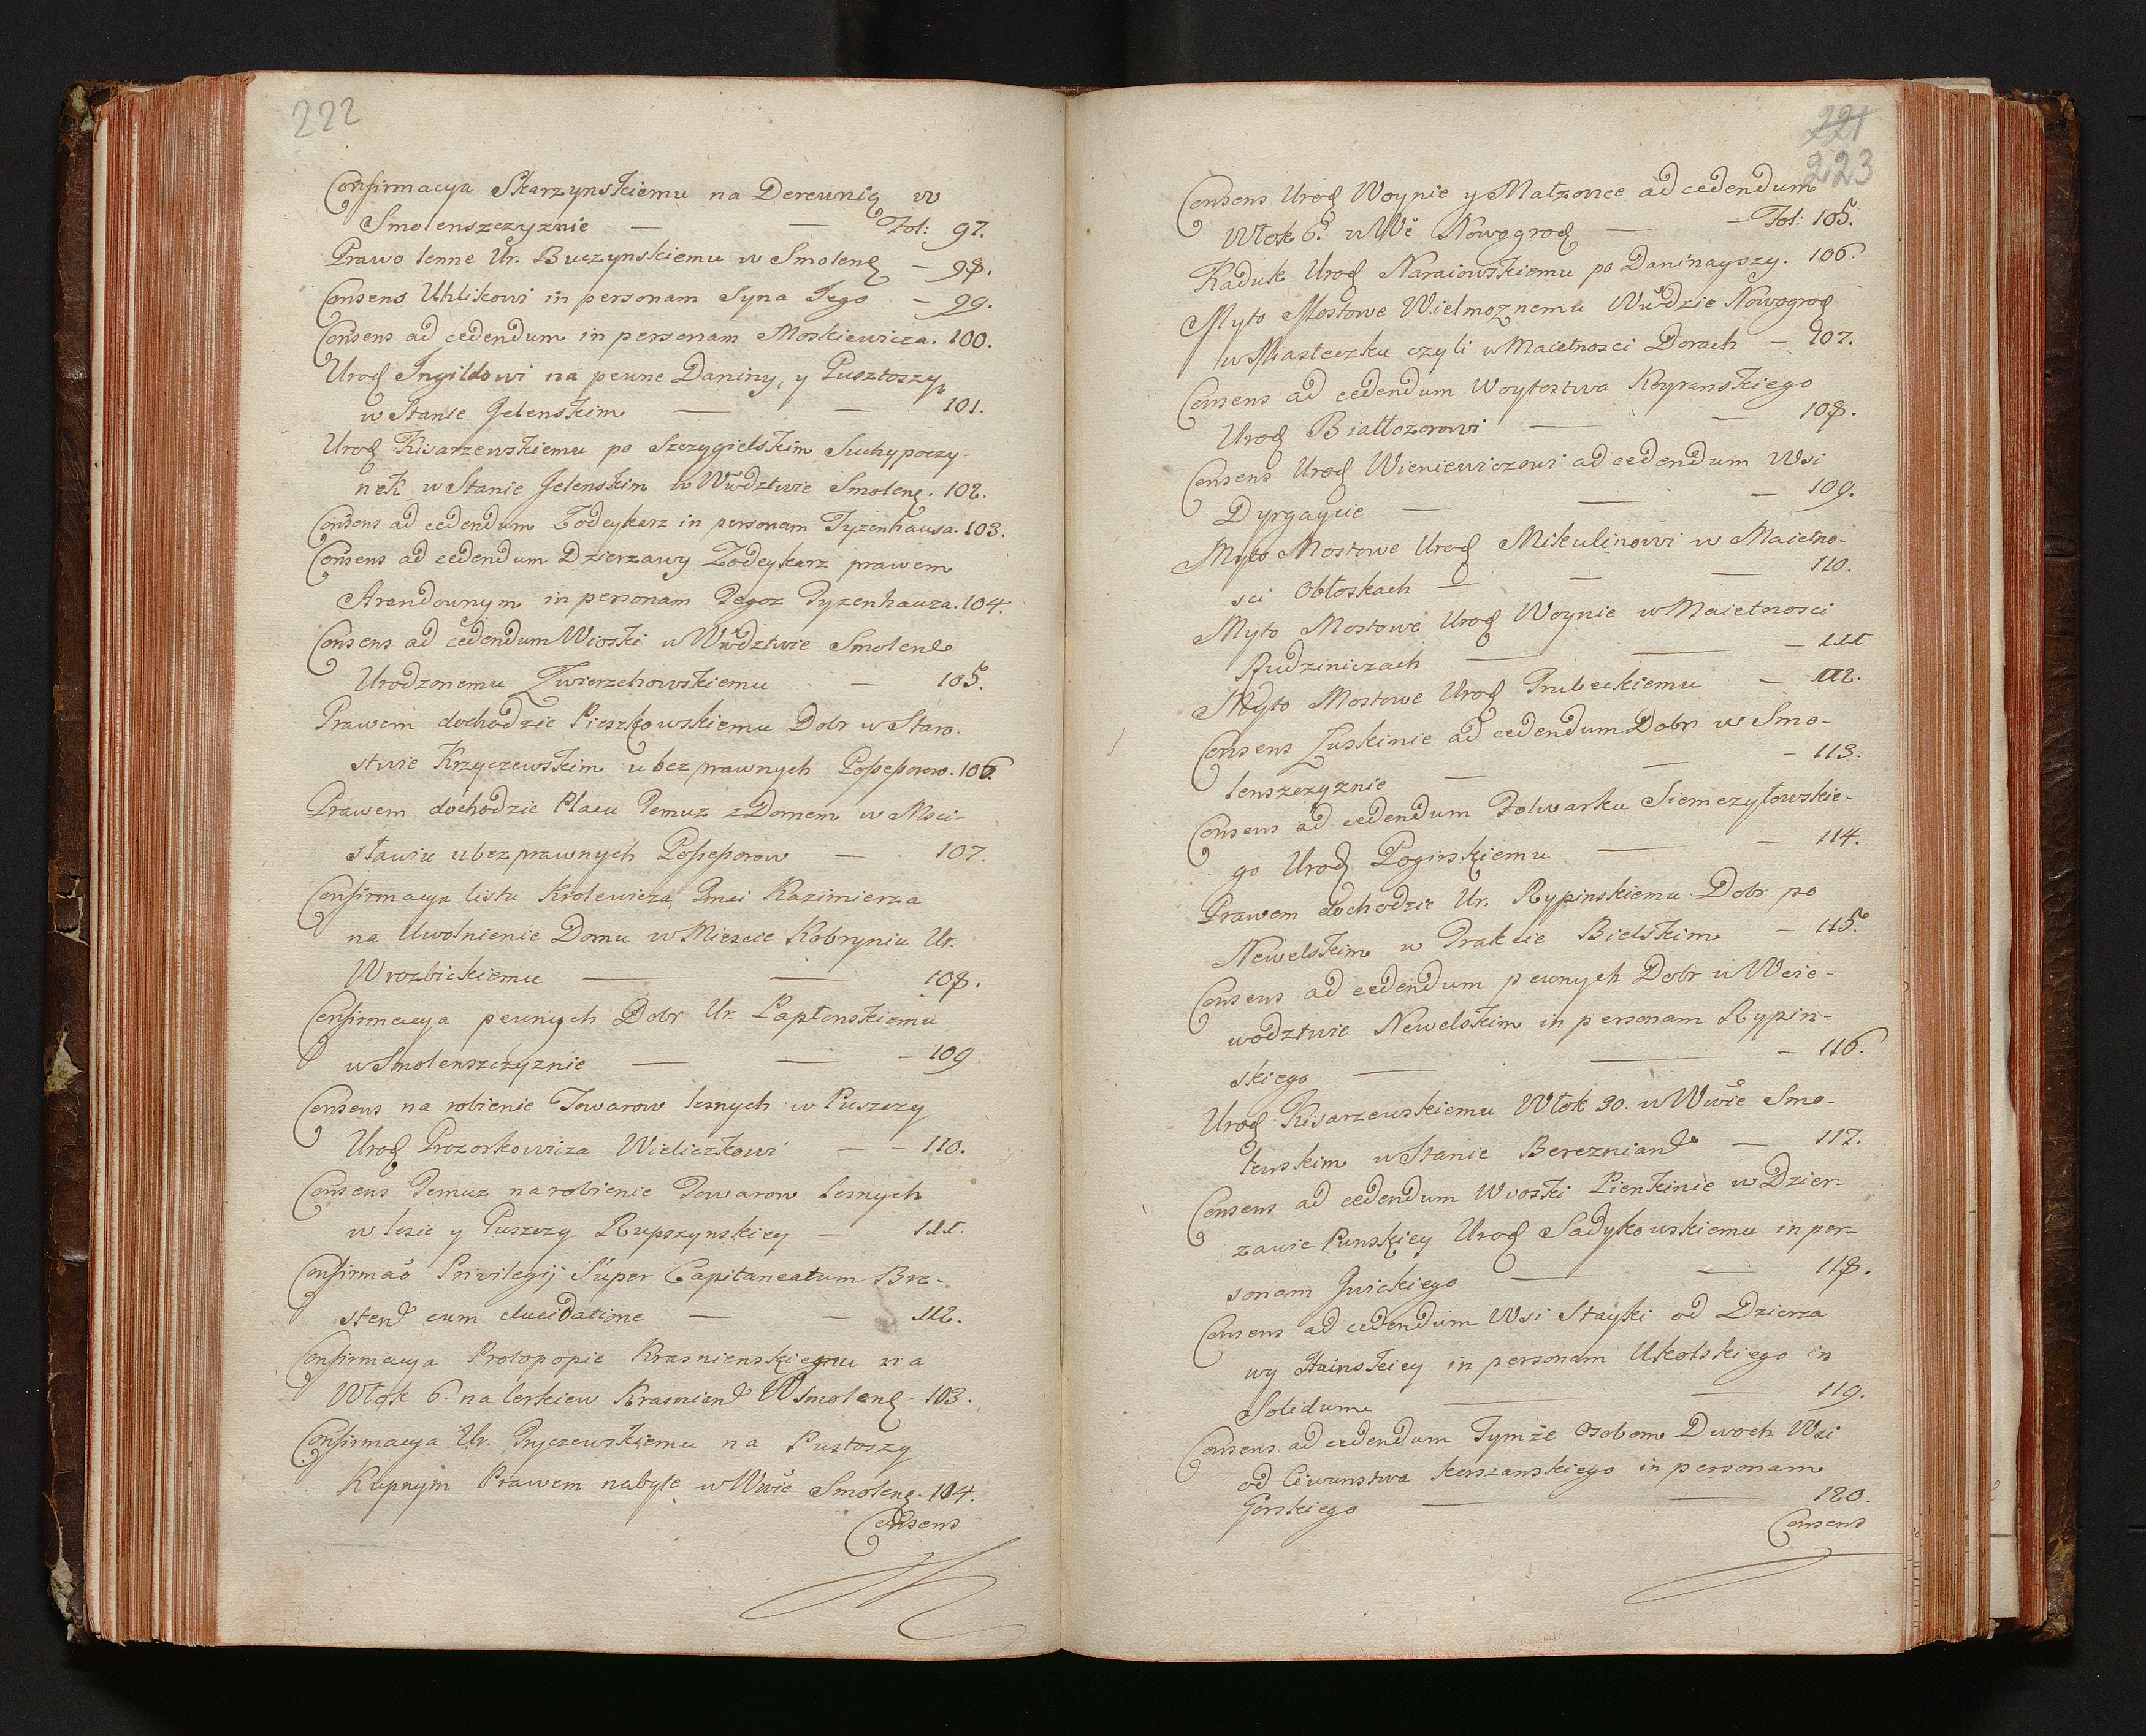 222
Confirmacya Skarzynskiemu na Derewnią w
Smolenszczyznie — — Fol: 97.
Prawo lenne Ur. Buczynskiemu w Smolen — 98.
Consens Uhlikowi in personam Syna Jego — 99.
Consens ad cedendum in personam Moskiewicza. 100.
Urod Ingildowi na pewne Daniny, y Pustoszy
w Stanie Jelenskim — — 101.
Urod Kisarzewskiemu po Szczygielskim Suchypoczy-
nek w Stanie Jelenskim w Wwdztwie Smolen. 102.
Consens ad cedendum Zodeykarz in personam Tyzenhausa. 103.
Consens ad cedendum Dzierzawy Zodeykarz prawem
Arendownym in personam Tegoz Tyzenhauza. 104.
Consens ad cedendum Wioski w Wwdztwie Smolen
Urodzonemu Zwierzchowskiemu — 105.
Prawem dochodzic Pieszkowskiemu Dobr w Staro-
stwie Krzyczewskim u bezprawnych Possessorow. 106
Prawem dochodzic Placu Temuz z Domem w Msci-
sławiu u bezprawnych Possessorow — 107.
Confirmacya listu Krolewicza Jmci Kazimierza
na Uwolnienie Domu w Miescie Kobryniu Ur.
Wrozbickiemu — — 108.
Confirmacya pewnych Dobr Ur. Laptonskiemu
w Smolenszczyznie — — 109
Consens na robienie Towarow lesnych w Puszczy
Urod Prozorkowicza Wieliczkowi — — 110.
Consens Temuz na robienie Towarow lesnych
w lesie y Puszczy Rupszynskiey — 111.
Confirmao Privilegij Super Capitaneatum Bre-
sten cum elucidatione — — 112.
Confirmacya Protopopie Krasnienskiemu na
Włok 6. na Cerkiew Krasnien W Smolen. 103.
Confirmacya Ur. Pryczewskiemu na Pustoszy
Kupnym Prawem nabyte w Wwie Smolen. 104.
Consens
221
223
Consens Urod Woynie y Małzonce ad cedendum
Włok 6. w Wie Nowogrod — — Fol: 105.
Kaduk Urod Naraiowskiemu po Daninayszy. 106.
Myto Mostowe Wielmoznemu Wwdzie Nowogrod
w Miasteczku czyli w Maietnosci Dorach — 107.
Consens ad cedendum Woytostwa Koyranskiego
Urod Białłozorowi — — 108.
Consens Urod Wieniewiczowi ad cedendum Wsi
Dyrgaycie — — — 109.
Myto Mostowe Urod Mikulinowi w Maietno-
sci Obłoskach — — — 110.
Myto Mostowe Urod Woynie w Maietnosci
Rudziniczach — — — 111
Myto Mostowe Urod Trubeckiemu — 112.
Consens Łuskinie ad cedendum Dobr w Smo-
lenszczyznie — — — 113.
Consens ad cedendum Folwarku Siemczyłowskie-
go Urod Pogirskiemu — — 114.
Prawem dochodzic Ur. Rypinskiemu Dobr po
Newelskim w Trakcie Bielskim — 115.
Consens ad cedendum pewnych Dobr w Woie-
wodztwie Newelskim in personam Rypin-
skiego — — — 116.
Urod Kisarzewskiemu Włok 30. w Wwie Smo-
lenskim w Stanie Bereznian — 117.
Consens ad cedendum Wioski Pienkinie w Dzier-
zawie Punskiey Urod Sadykowskiemu in per-
sonam Gnickiego — — 118.
Consens ad cedendum Wsi Stayki od Dzierza
wy Hainskiey in personam Ukolskiego in
Solidum — — 119.
Consens ad cedendum Tymże Osobom Dwoch Wsi
od Ciwunstwa Korszanskiego in personam
Gorskiego — — 120.
Consens